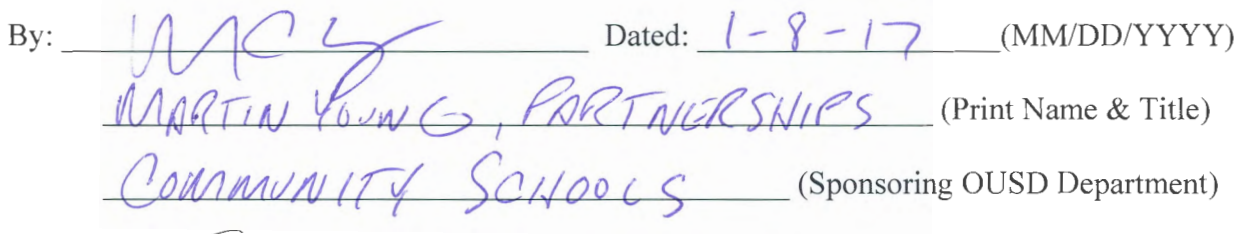 By: Dated: 1-8-17 (MM/DD/YYYY)
MARTIN YOUNG, PARTNERSHIPS (Print Name & Title)
COMMUNITY SCHOOLS (Sponsoring OUSD Department)